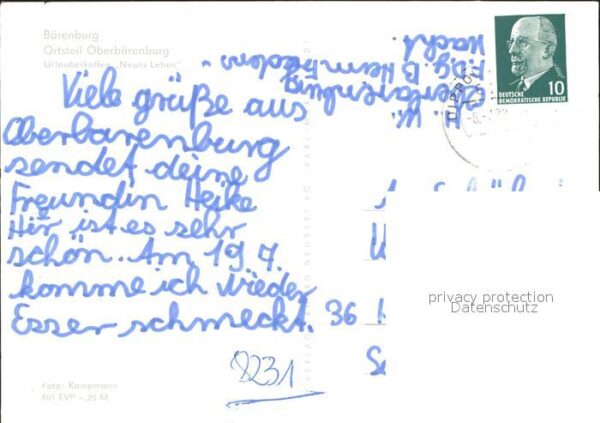 Bärenburg
Ortsteil Oberbärenburg
Urlauberkaffee „Neues Leben"
Viele grüße aus
Oberbarenburg
sendet deine
Freundin Heike
Hir ist es sehr
schön. Am 19 7.
komme ich wieder
Esser schmeckt.
8231
Foto: Kampmann
801 EVP -,20 M
H. W.
Oberbärenburg
B Heim Frieden
10
DEUTSCHE
DEMOKRATISCHE REPUBLIK
36
privacy protection
Datenschutz